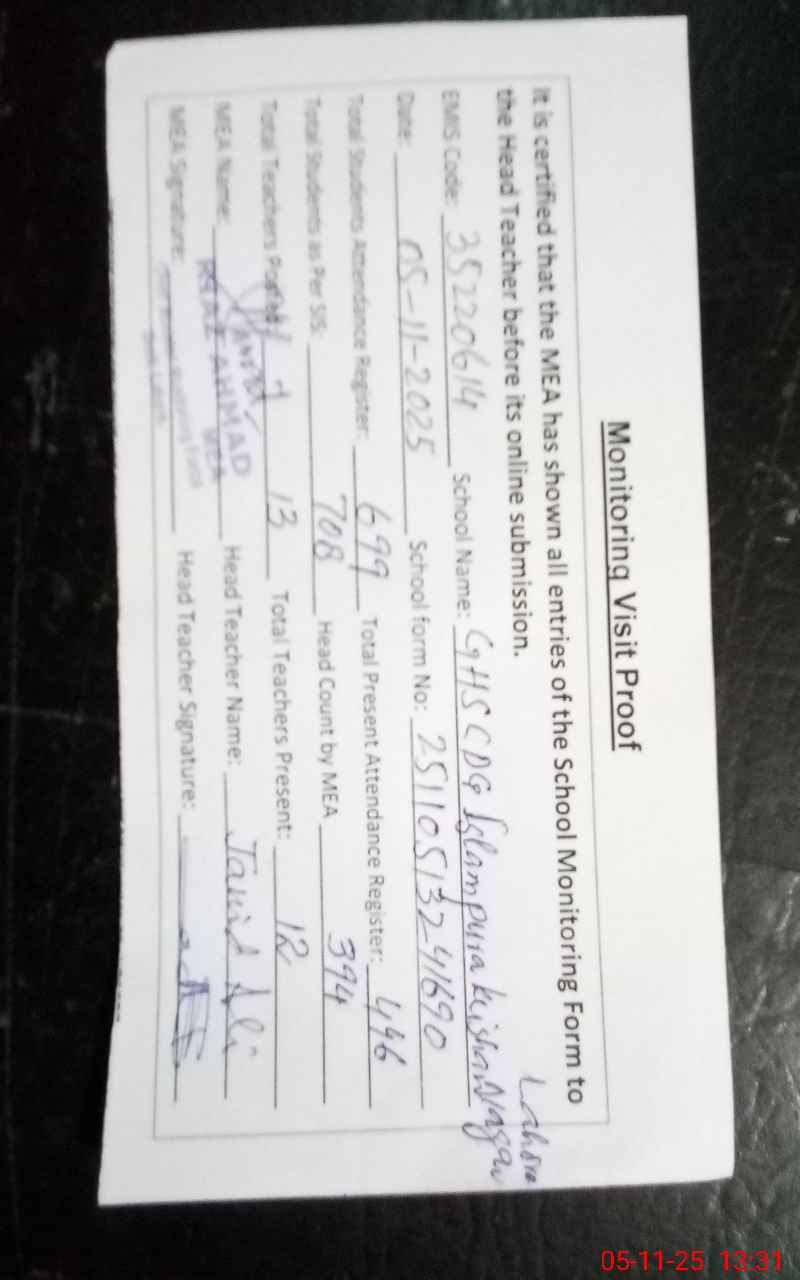 Monitoring Visit Proof
It is certified that the MEA has shown all entries of the School Monitoring Form to
the Head Teacher before its online submission.
Lahore
EMIS Code: 35220614 School Name: GHS CDG Islampura Krishan Nagar
Date: 05-11-2025 School form No: 25110513241690
Total Students Attendance Register: 699 Total Present Attendance Register: 446
Total Students as Per SIS: 708 Head Count by MEA 394
Total Teachers Posted: 13 Total Teachers Present: 12
MEA Name: RIAZ AHMAD Head Teacher Name: Javid Ali
MEA
MEA Signature: Head Teacher Signature:
05-11-25 13:31